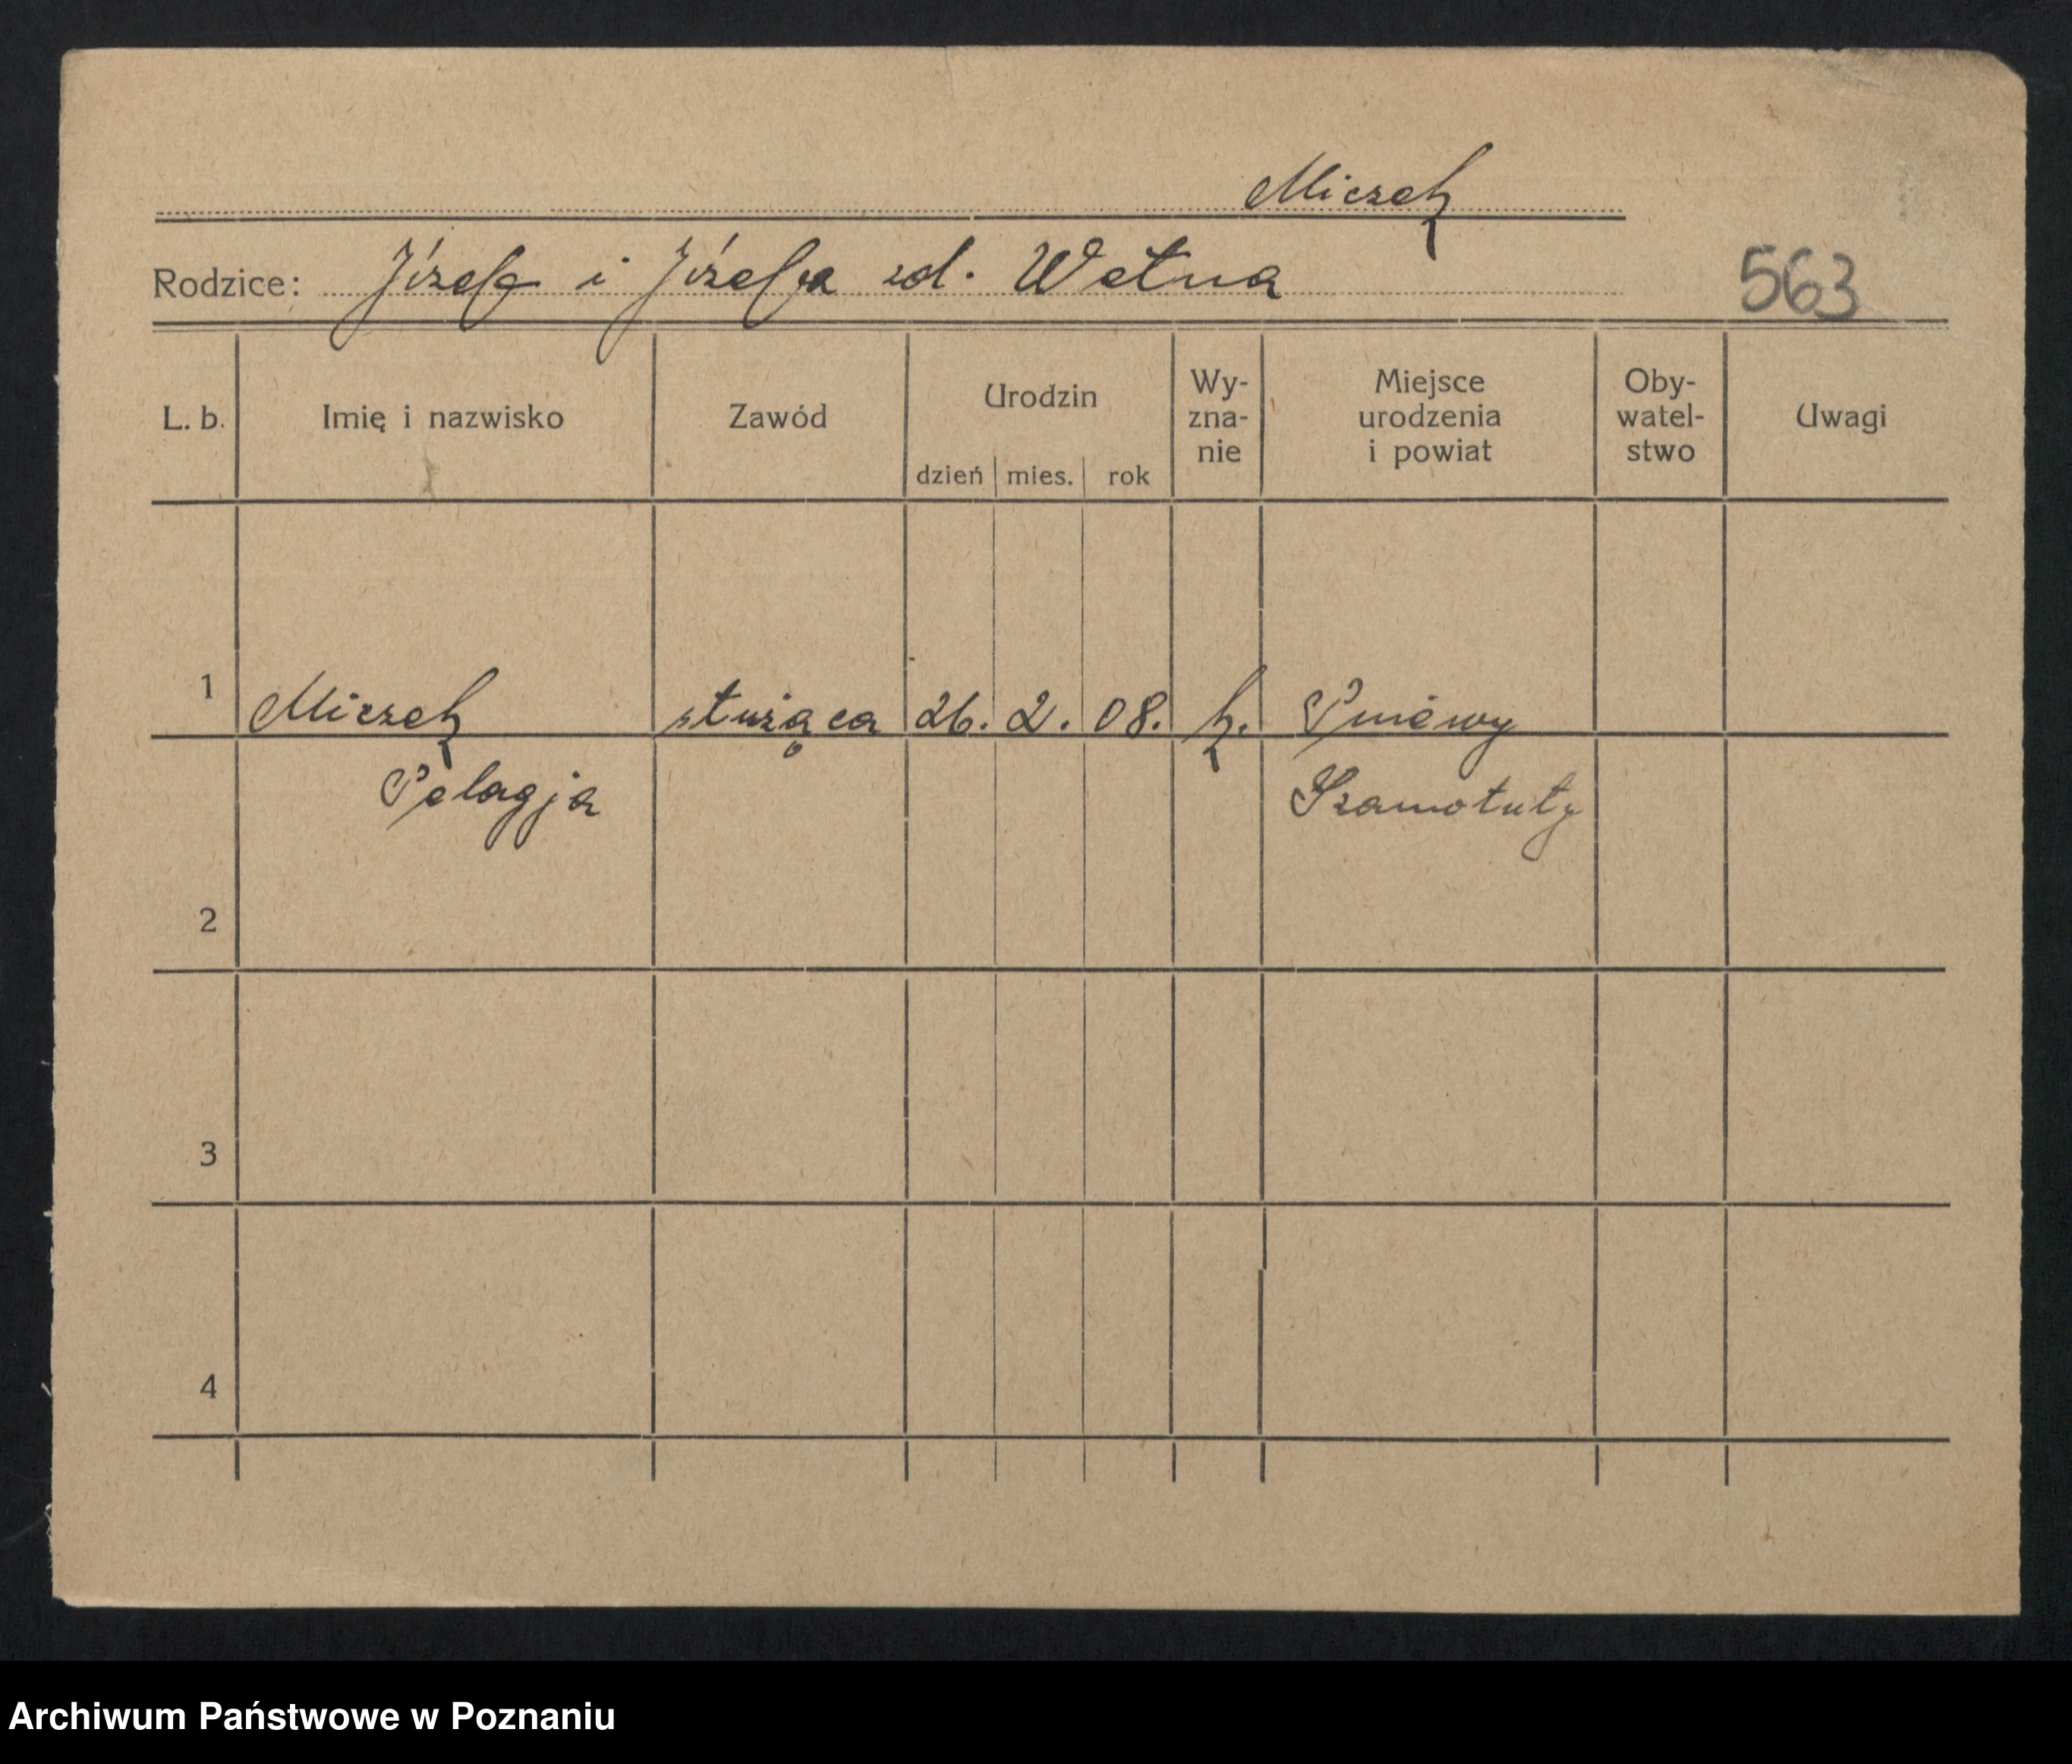 Miczek
Rodzice: Józef i Józefa zd. Wełna
563
L. b. Imię i nazwisko Zawód Urodzin dzień mies. rok Wy-zna-nie Miejsce urodzenia i powiat Oby-watel-stwo Uwagi
1 Miczek służąca 26. 2. 08. k. Pniewy
Pelagja Szamotuły
2
3
4
Archiwum Państwowe w Poznaniu